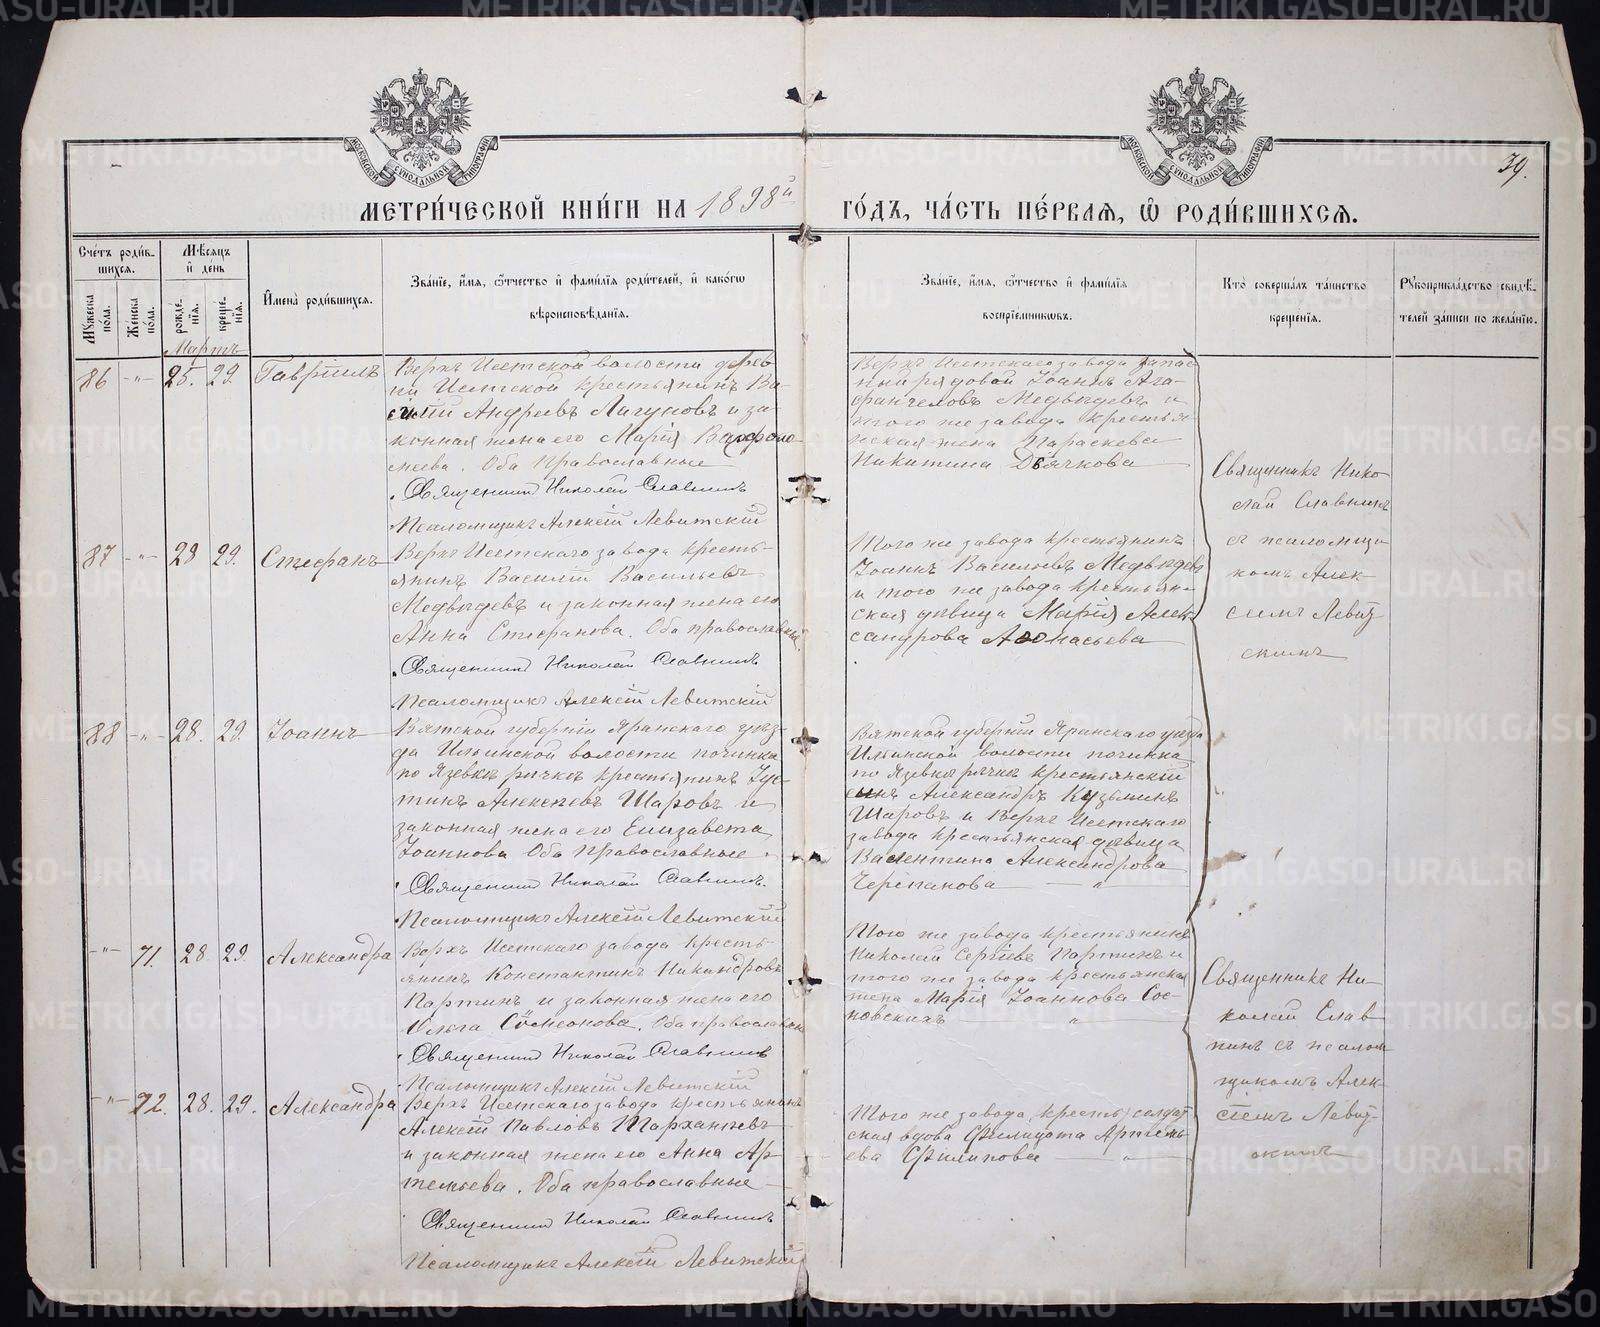 МЕТРИ́ЧЕСКОЙ КНИ́ГИ НА 1898й ГО́ДЪ, ЧА́СТЬ ПЕ́РВАЯ, Ѡ РОДИ́ВШИХСЯ.
39.
Сче́тъ роди́в-
шихся.
Мѣ́сяцъ
и де́нь
Му́жеска
по́ла.
Же́нска
по́ла.
рожде́-
нія.
креще́-
нія.
Имена̀ роди́вшихся.
Зва́ніе, и́мя, ѻ́тчество и фами́лія роди́телей, и како́гѡ
вѣроисповѣ́данія.
Зва́ніе, и́мя, ѻ́тчество и фами́лія
воспріе́мникѡвъ.
Кто̀ соверша́лъ та́инство
креще́нія.
Рукоприкла́дство свидѣ́-
телей за́писи по жела́нію.
Мартъ
86 -"- 25. 29. Гавріилъ
Верхъ Исетской волости дерев-
ни Исетской крестьянинъ Ва-
силій Андреевъ Лагуновъ и за-
конная жена его Марія Варфоло-
меева. Оба Православные
Священник Николай Славнинъ
Псаломщикъ Алексій Левитскій
Верхъ Исетскаго завода запас-
ный рядовой Іоаннъ Ага-
фангеловъ Медвѣдевъ и
того же завода крестья-
нская жена Параскева
Никитина Дьячкова
Священникъ Нико-
лай Славнинъ
съ псаломщи-
комъ Алек-
сіемъ Левит-
скимъ
87 -"- 28 29. Стефанъ
Верхъ Исетскаго завода кресть-
янинъ Василій Васильевъ
Медвѣдевъ и законная жена его
Анна Стефанова. Оба православные
Священник Николай Славнинъ
Псаломщикъ Алексій Левитскій
Того же завода крестьянинъ
Іоаннъ Васильевъ Медвѣдевъ
и того же завода крестьян-
ская дѣвица Марія Алек-
сандрова Аѳонасьева
88 -"- 28. 29. Іоаннъ
Вятской губерніи Яранскаго уѣз-
да Ильинской волости починка
по Язевкѣ рѣчкѣ крестьянинъ Іус-
тинъ Алексѣевъ Шаровъ и
законная жена его Елизавета
Іоаннова Оба православные
Священник Николай Славнинъ.
Псаломщикъ Алексій Левитскій
Вятской губерніи Яранскаго уѣзда
Ильинской волости починка
по Язевкѣ рѣчкѣ крестьянскій
сынъ Александръ Кузьминъ
Шаровъ и Верхъ Исетскаго
завода крестьянская дѣвица
Валентина Александрова
Черепанова — " —
-"- 71. 28. 29. Александра
Верхъ Исетскаго завода кресть-
янинъ Константинъ Никандровъ
Партинъ и законная жена его
Ольга Сѵмеонова. Оба православные
Священник Николай Славнинъ
Псаломщикъ Алексій Левитскій
Того же завода крестьянинъ
Николай Сергіевъ Партинъ и
того же завода крестьянская
жена Марія Іоаннова Сос-
новскихъ "
Священникъ Ни-
колай Слав-
нинъ съ псалом-
щикомъ Алек-
сіемъ Левит-
скимъ
-"- 72. 28. 29. Александра
Верхъ Исетскаго завода крестьянинъ
Алексій Павловъ
и законная жена его Анна Ар-
темьева. Оба православные
Священник Николай Славнинъ
Псаломщикъ Алексій Левитскій
Того же завода (кресть) солдат-
ская вдова Филицата Артемь-
ева Филипова — " —
METRIKI.GASO-URAL.RU